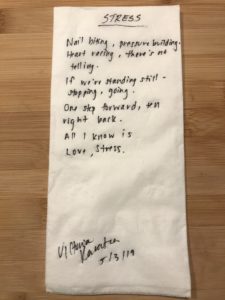 STRESS
Nail biting, pressure building.
Heart racing, there's no
telling.
If we're standing still -
stopping, going.
One step forward, ten
right back.
All I know is
Love, Stress.
Victoria
5/3/19